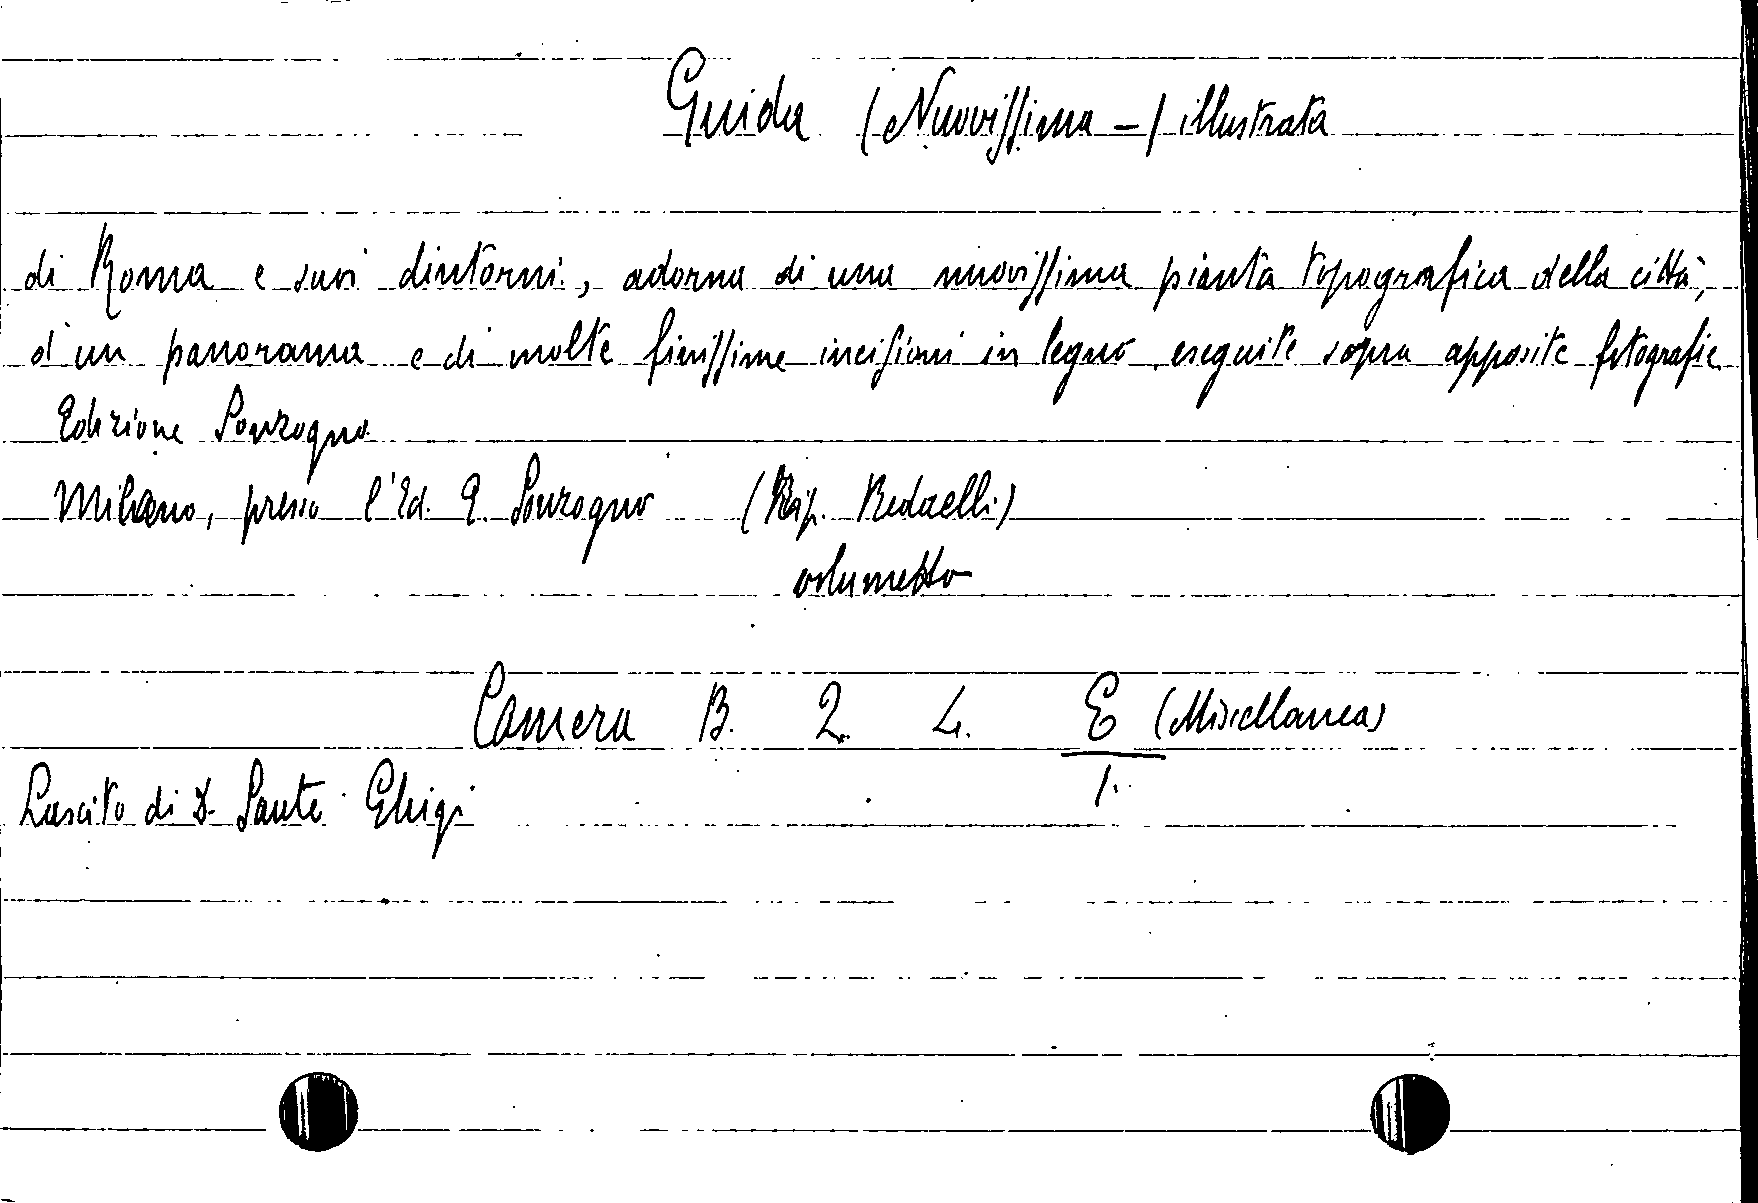 Guida (Nuovissima -) illustrata
di Roma e suoi dintorni, adorna di una nuovissima pianta topografica della città,
d'un panorama e di molte finissime incisioni in legno eseguite sopra apposite fotografie
Edizione Sonzogno
Milano, presso l'Ed. E. Sonzogno (Tip. Redaelli)
volumetto
Camera B. 2. 4. E (Miscellanea)
1.
Lascito di D. Sante Ghigi